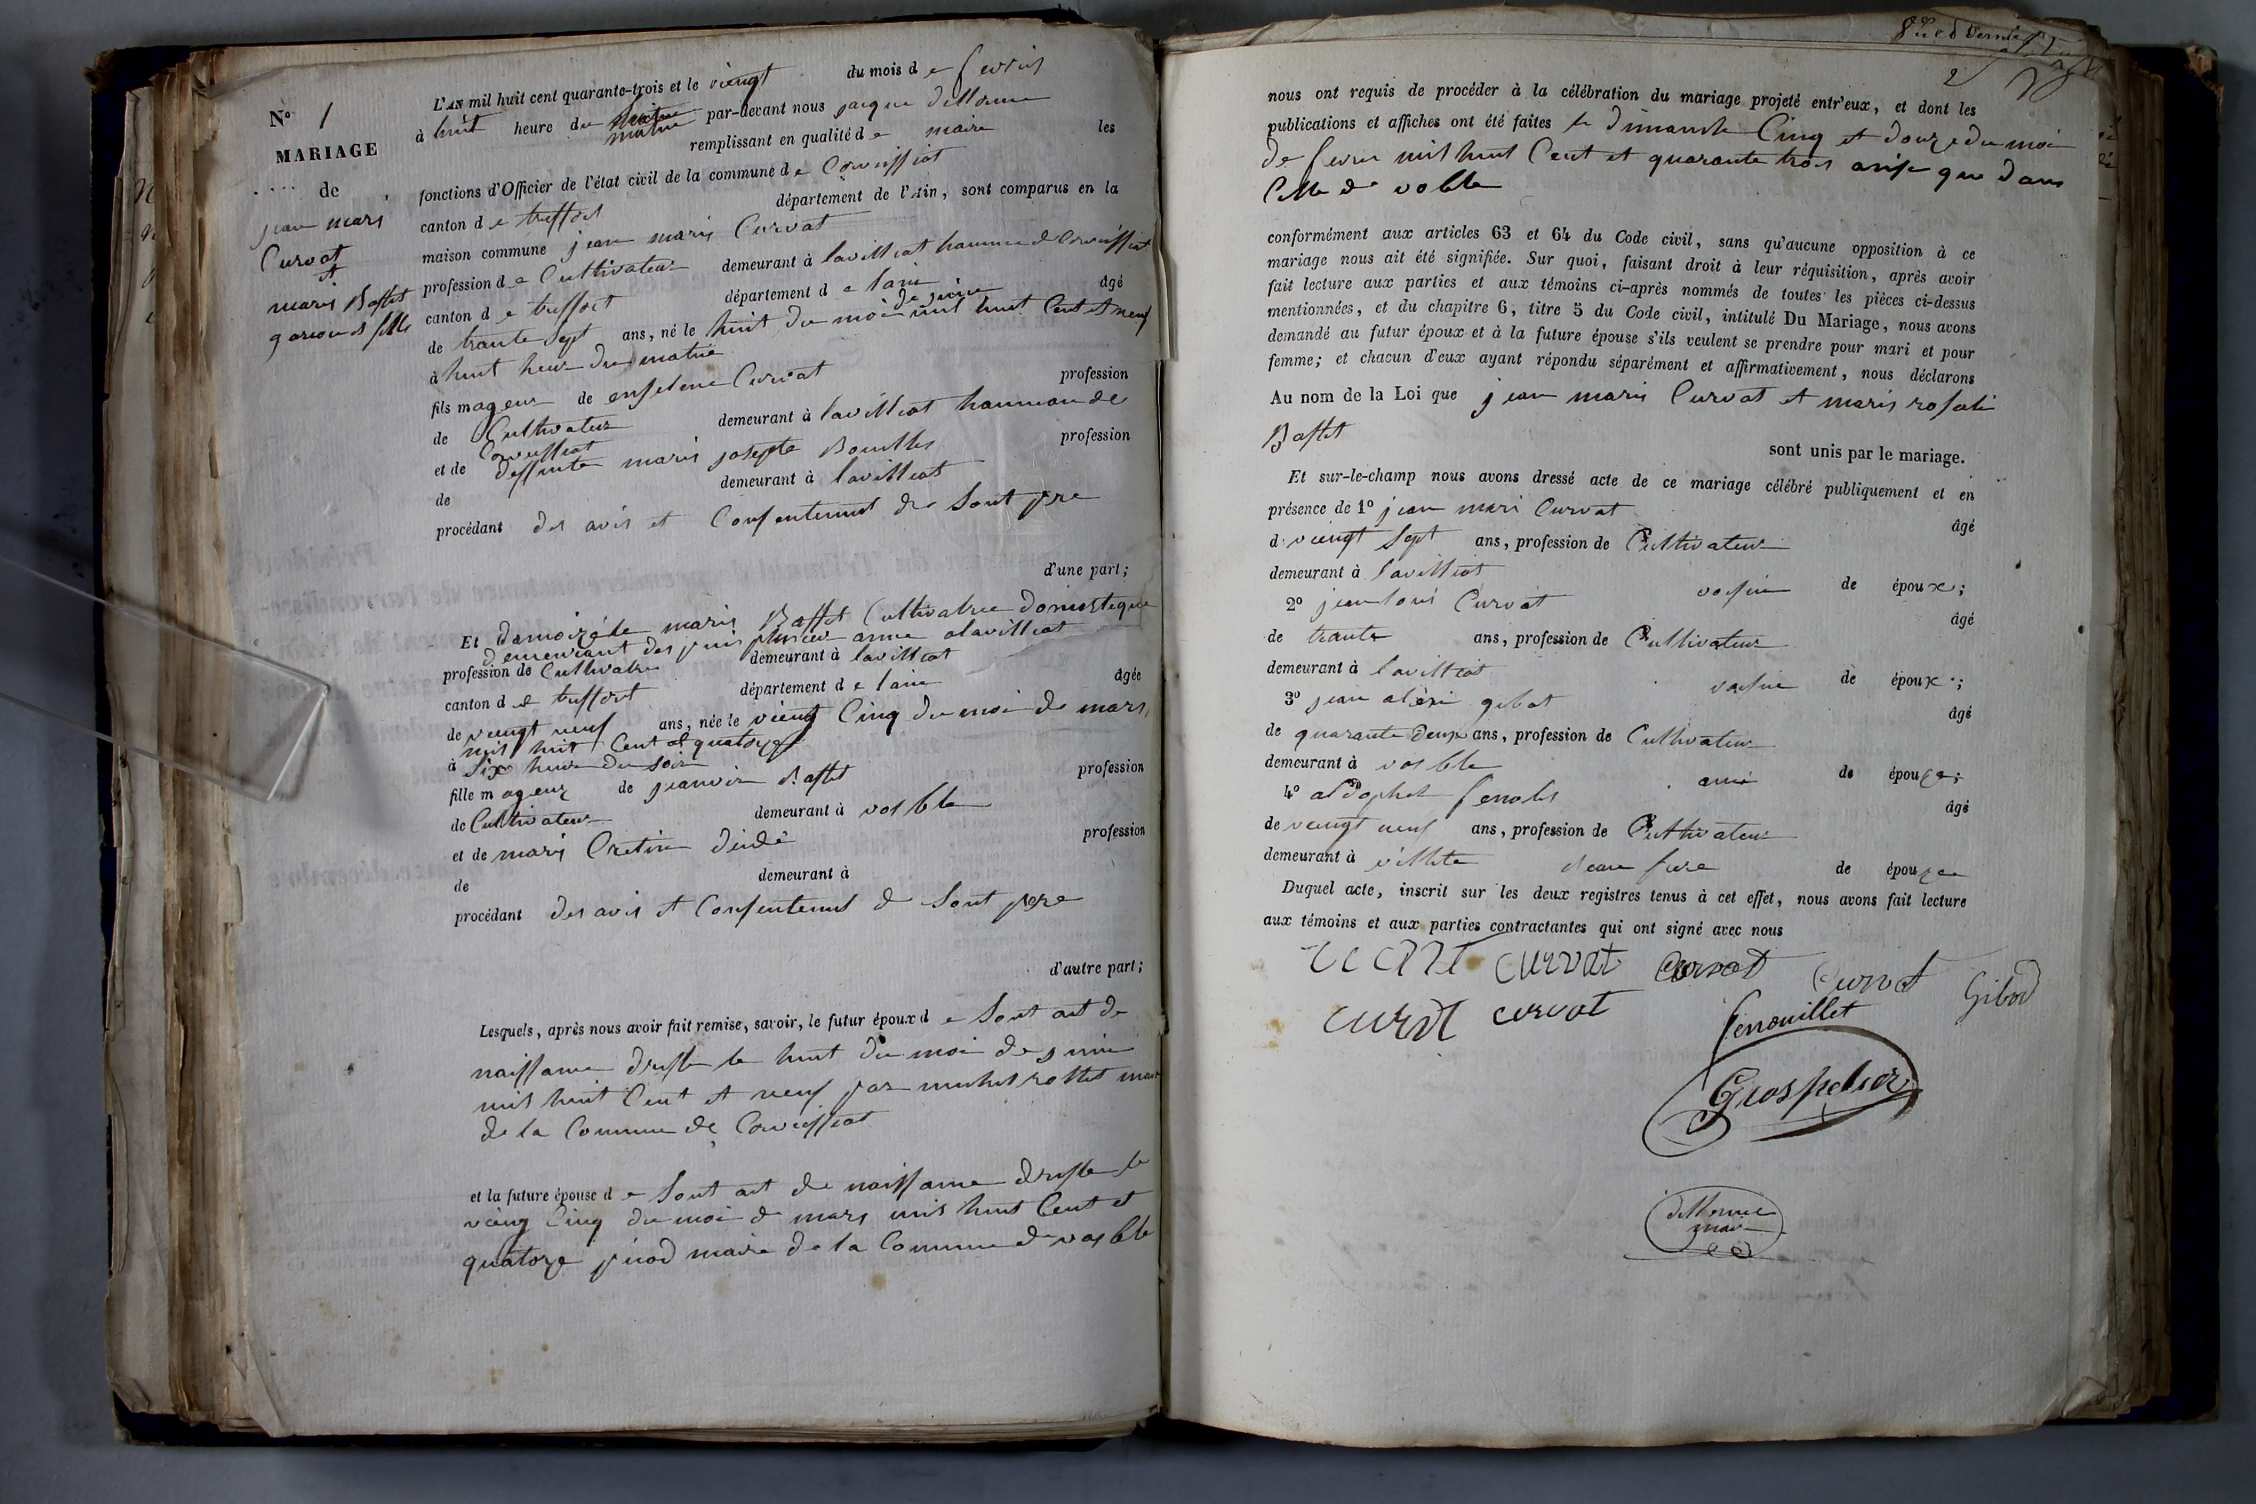 N° 1
MARIAGE
de
jean mari
Curvat
et
maris Baffet
garcon et fille
L'AN mil huit cent quarante-trois et le viengt du mois d e fevries
à huit heure du matine par-devant nous jacque dellorme
remplissant en qualité d e maire les
fonctions d'Officier de l'état civil de la commune d e Corveissiat
canton d e treffort département de l'Ain, sont comparus en la
maison commune jean maris Curvat
profession d e Cultivateur demeurant à lavilliat hammau de Corveissiat
canton d e treffort département d e lain âgé
de trante sept ans, né le huit du moi de juine mil huit Cent et neuf
à huit heur du matine
fils mageur de enselme Curvat profession
de Cultivateur demeurant à lavilliat hammau de
Corveissiat
et de deffunte maris josepte Bouilles profession
de demeurant à lavilliat
procédant des avis et Consentemt de sont pere
d'une part;
Et damoizéle maris Baffet Cultivatrice domestique
demeurant des puis plusieur anne a lavilliat
profession de Cultivatrice demeurant à lavilliat
canton d e treffort département d e lain âgée
de veingt neuf ans, née le vieng Cinq du moi de mars
mil huit Cent et quatorze
à Six heure du soir
fille mageur de janvier Baffet profession
de Cultivateur demeurant à vosble
et de maris Cretine profession
de demeurant à
procédant des avis et Consentemt de sont pere
d'autre part;
Lesquels, après nous avoir fait remise, savoir, le futur époux d e sont act de
naissance dresse le huit du moi de juine
mil huit Cent et neuf par michel rollet maire
de la Commune de Corveissiat
et la future épouse d e sont act de naissance dresse le
vieng Cinq du moi de mars mil huit Cent et
quatorze maire de la Commune de vosble
2
nous ont requis de procéder à la célébration du mariage projeté entr'eux, et dont les
publications et affiches ont été faites le dimanche Cinq et douze du moi
de fevrier mil huit Cent et quarante trois ainsi que dans
Celle de voble
conformément aux articles 63 et 64 du Code civil, sans qu'aucune opposition à ce
mariage nous ait été signifiée. Sur quoi, faisant droit à leur réquisition, après avoir
fait lecture aux parties et aux témoins ci-après nommés de toutes les pièces ci-dessus
mentionnées, et du chapitre 6, titre 5 du Code civil, intitulé Du Mariage, nous avons
demandé au futur époux et à la future épouse s'ils veulent se prendre pour mari et pour
femme; et chacun d'eux ayant répondu séparément et affirmativement, nous déclarons
Au nom de la Loi que jean maris Curvat et maris rosali
Baffet
sont unis par le mariage.
Et sur-le-champ nous avons dressé acte de ce mariage célébré publiquement et en
présence de 1° jean mari Curvat âgé
d viengt sept ans, profession de Cultivateur
demeurant à lavilliat voisine de époux;
2° jean loui Curvat âgé
de trante ans, profession de Cultivateur
demeurant à lavilliat voisine de époux;
3° jean alexi gibot âgé
de quarante deux ans, profession de Cultivateur
demeurant à vosble ami de épouze;
4° fenolis âgé
de veingt neuf ans, profession de Cultivateur
demeurant à villete beau frere de épouze
Duquel acte, inscrit sur les deux registres tenus à cet effet, nous avons fait lecture
aux témoins et aux parties contractantes qui ont signé avec nous
curvat curvat Curvat Gibod
curvat curvat fenouillet
Grospelier
dellorme
maire